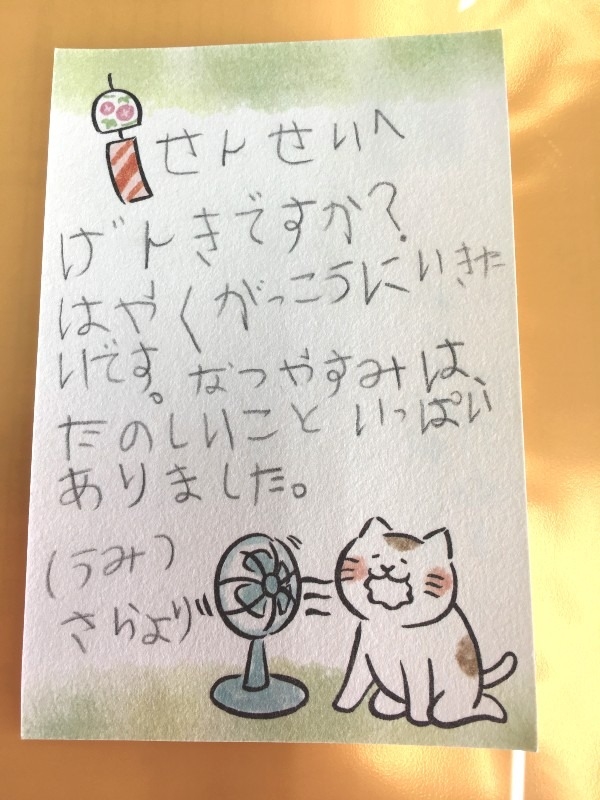 せんせいへ
げんきですか？
はやくがっこうにいきた
いです。なつやすみは、
たのしいこといっぱい
ありました。
(うみ)
さらより